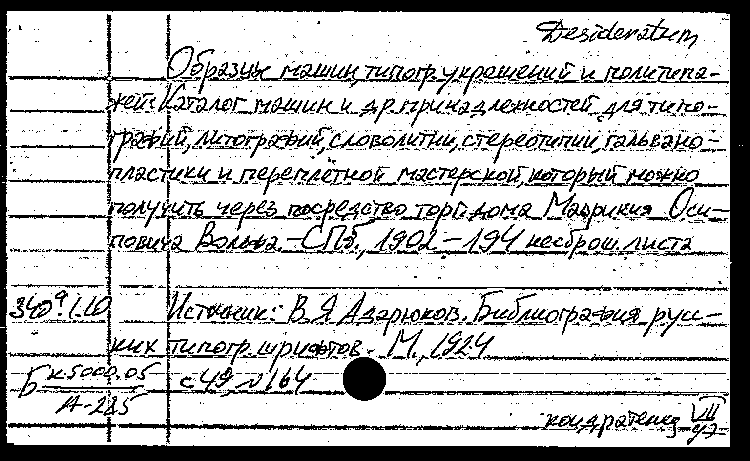 Desideratum
Образцы машин, типогр. украшений и политипа-
жей: Каталог машин и др. принадлежностей для типо-
графий, литографий, словолитни, стереотипии, гальвано-
пластики и переплётной мастерской, который можно
получить через посредство торг. дома Маврикия Оси-
повича Вольфа. - СПб., 1902 - 194 несброш. листа
340ª 1.10 Источник: В.Я. Адарюков. Библиография русс-
ких типогр. шрифтов. М., 1924
Б к.5000.05 с 49, № 164
А-225
кондратенко VII